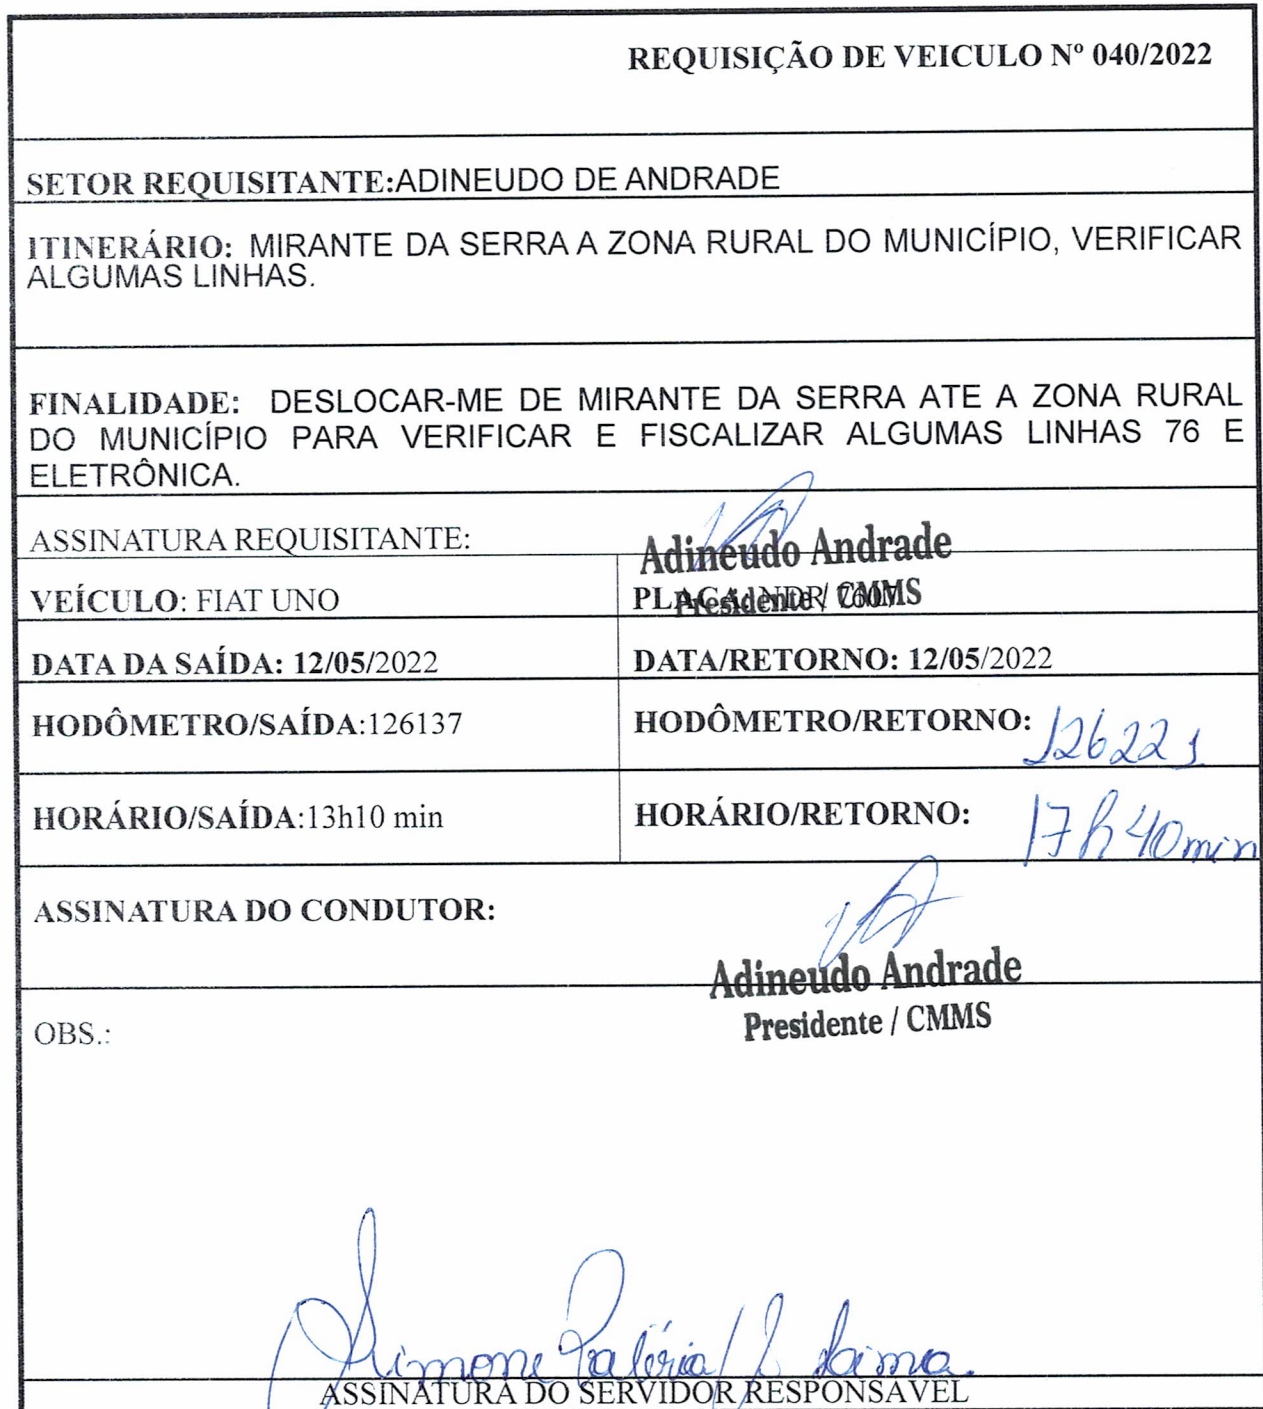 REQUISIÇÃO DE VEICULO Nº 040/2022
SETOR REQUISITANTE:ADINEUDO DE ANDRADE
ITINERÁRIO: MIRANTE DA SERRA A ZONA RURAL DO MUNICÍPIO, VERIFICAR
ALGUMAS LINHAS.
FINALIDADE: DESLOCAR-ME DE MIRANTE DA SERRA ATE A ZONA RURAL
DO MUNICÍPIO PARA VERIFICAR E FISCALIZAR ALGUMAS LINHAS 76 E
ELETRÔNICA.
ASSINATURA REQUISITANTE:
Adineudo Andrade
Presidente / CMMS
VEÍCULO: FIAT UNO
PLACA: NDR
DATA DA SAÍDA: 12/05/2022
DATA/RETORNO: 12/05/2022
HODÔMETRO/SAÍDA:126137
HODÔMETRO/RETORNO: 126221
HORÁRIO/SAÍDA:13h10 min
HORÁRIO/RETORNO: 17h40min
ASSINATURA DO CONDUTOR:
Adineudo Andrade
Presidente / CMMS
OBS.:
Simone
ASSINATURA DO SERVIDOR RESPONSAVEL